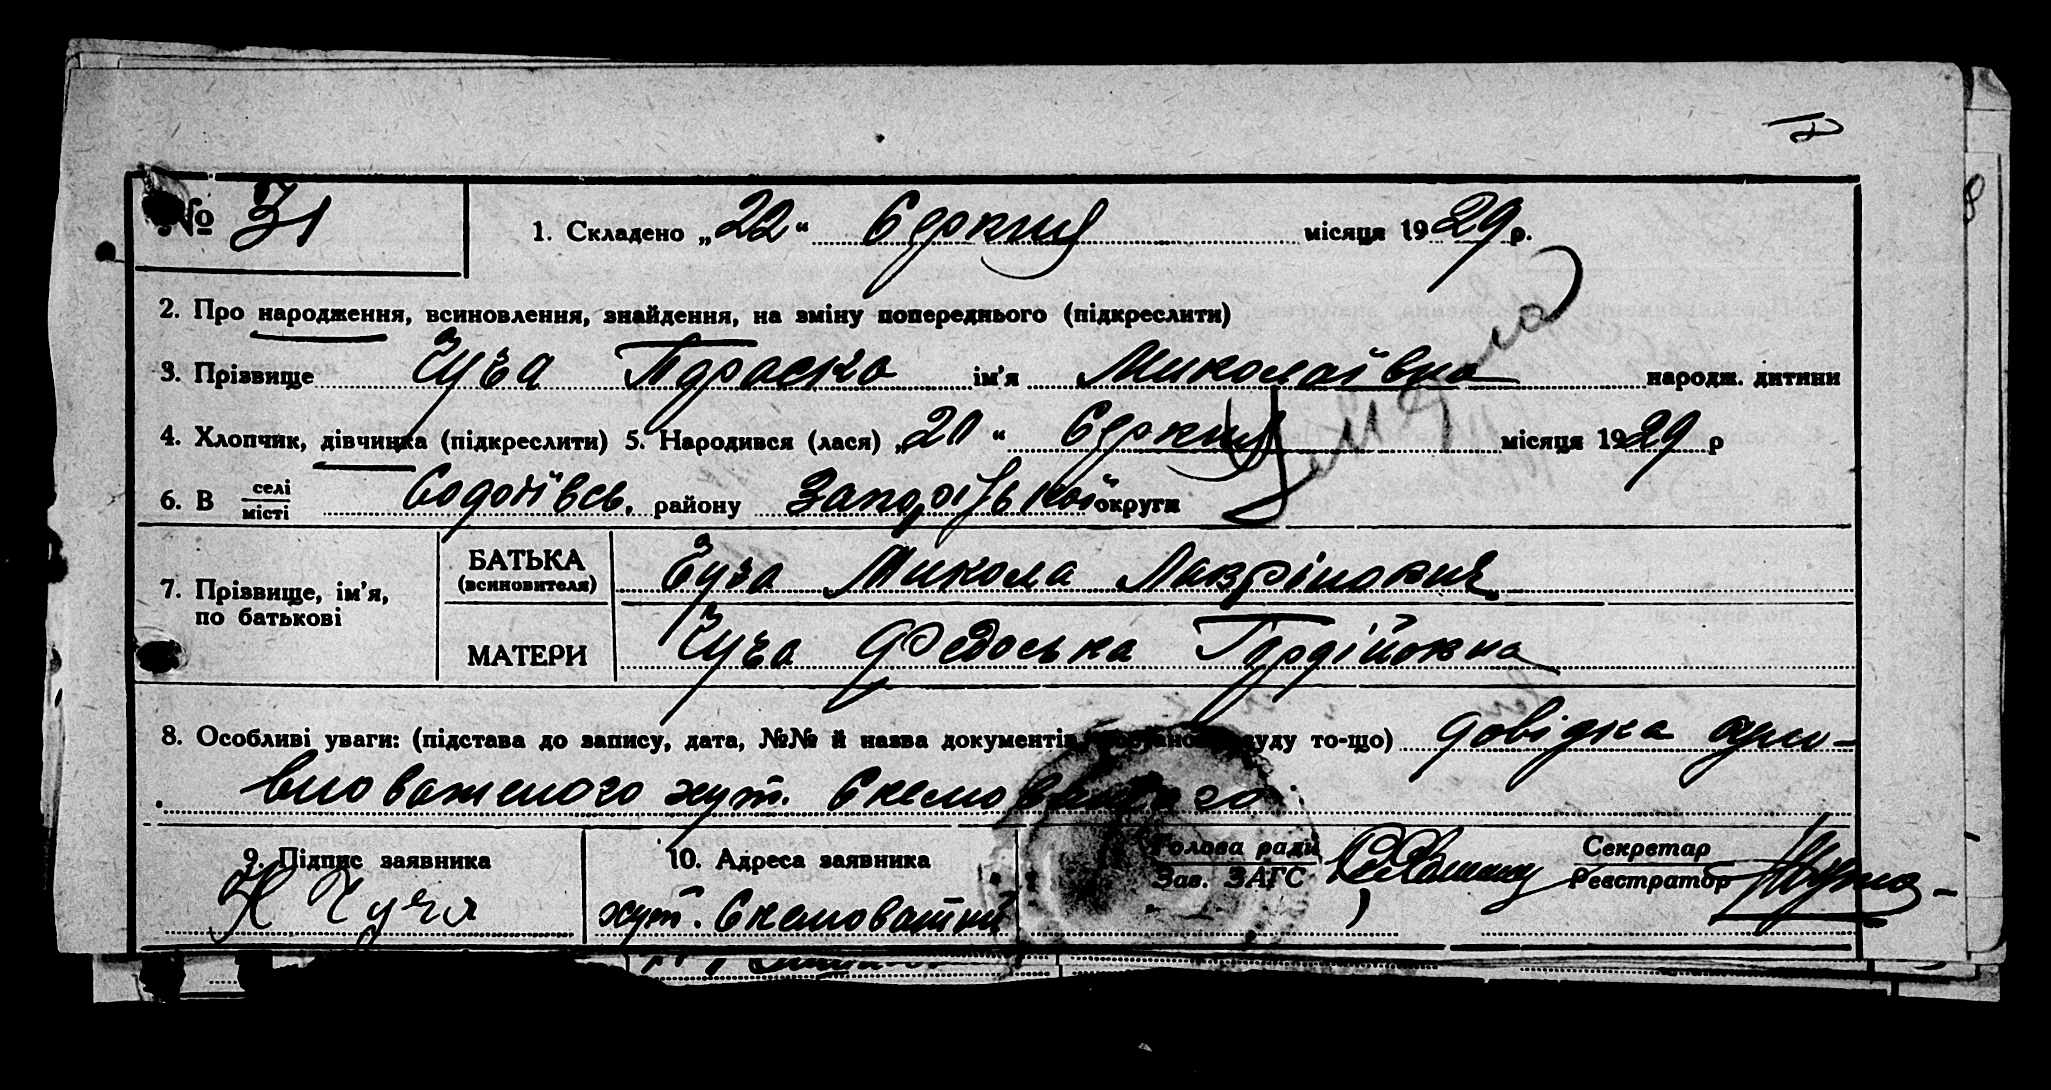 № 31
1. Складено „22“ Серпня місяця 1929 р.
2. Про народження, всиновлення, знайдення, на зміну попереднього (підкреслити)
3. Прізвище Чуча Параска ім'я Миколаївна народж. дитини
4. Хлопчик, дівчинка (підкреслити) 5. Народився (лася) „20“ Серпня місяця 1929 р
6. В селі місті району Запоріжької округи
7. Прізвище, ім'я, по батькові
БАТЬКА (всиновителя) Чуча Микола Лаврінович
МАТЕРИ Чуча Федоська Гордійовна
8. Особливі уваги: (підстава до запису, дата, №№ й назва документів, суду то-що) довідка упов-
новаженого хут.
9. Підпис заявника
Н Чуча
10. Адреса заявника
хут. Скеловатий
Голова ради
Зав. ЗАГС
Секретар
Реєстратор